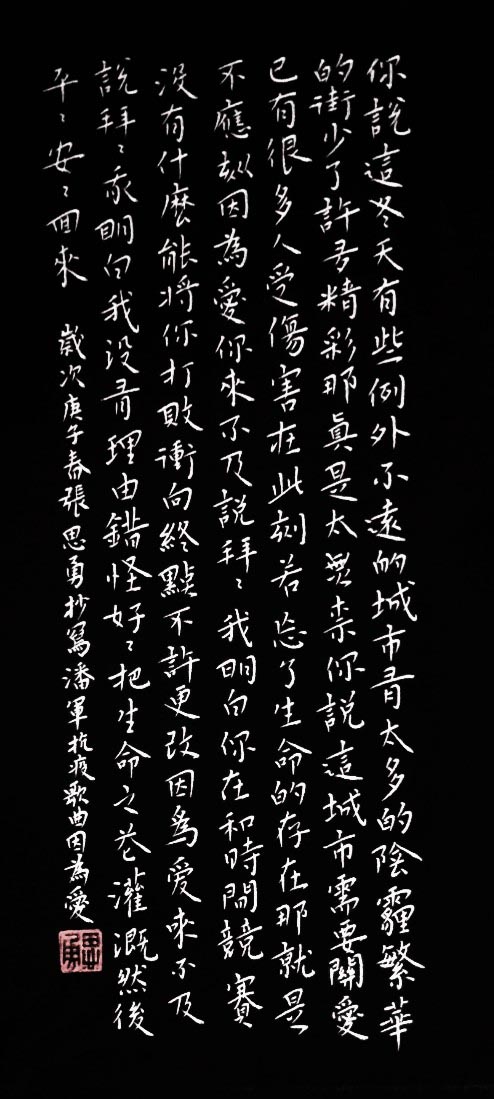 你說這冬天有些例外不遠的城市有太多的陰霾繁華
的街少了許多精彩那真是太無奈你說這城市需要關愛
已有很多人受傷害在此刻若忘了生命的存在那就是
不應該因為愛你來不及說拜〻我明白你在和時間競賽
沒有什麼能將你打敗衝向終點不許更改因為愛來不及
說拜〻我明白我沒有理由錯怪好〻把生命之花灌溉然後
平〻安〻回來
歲次庚子春張思勇抄寫潘軍抗疫歌曲因為愛